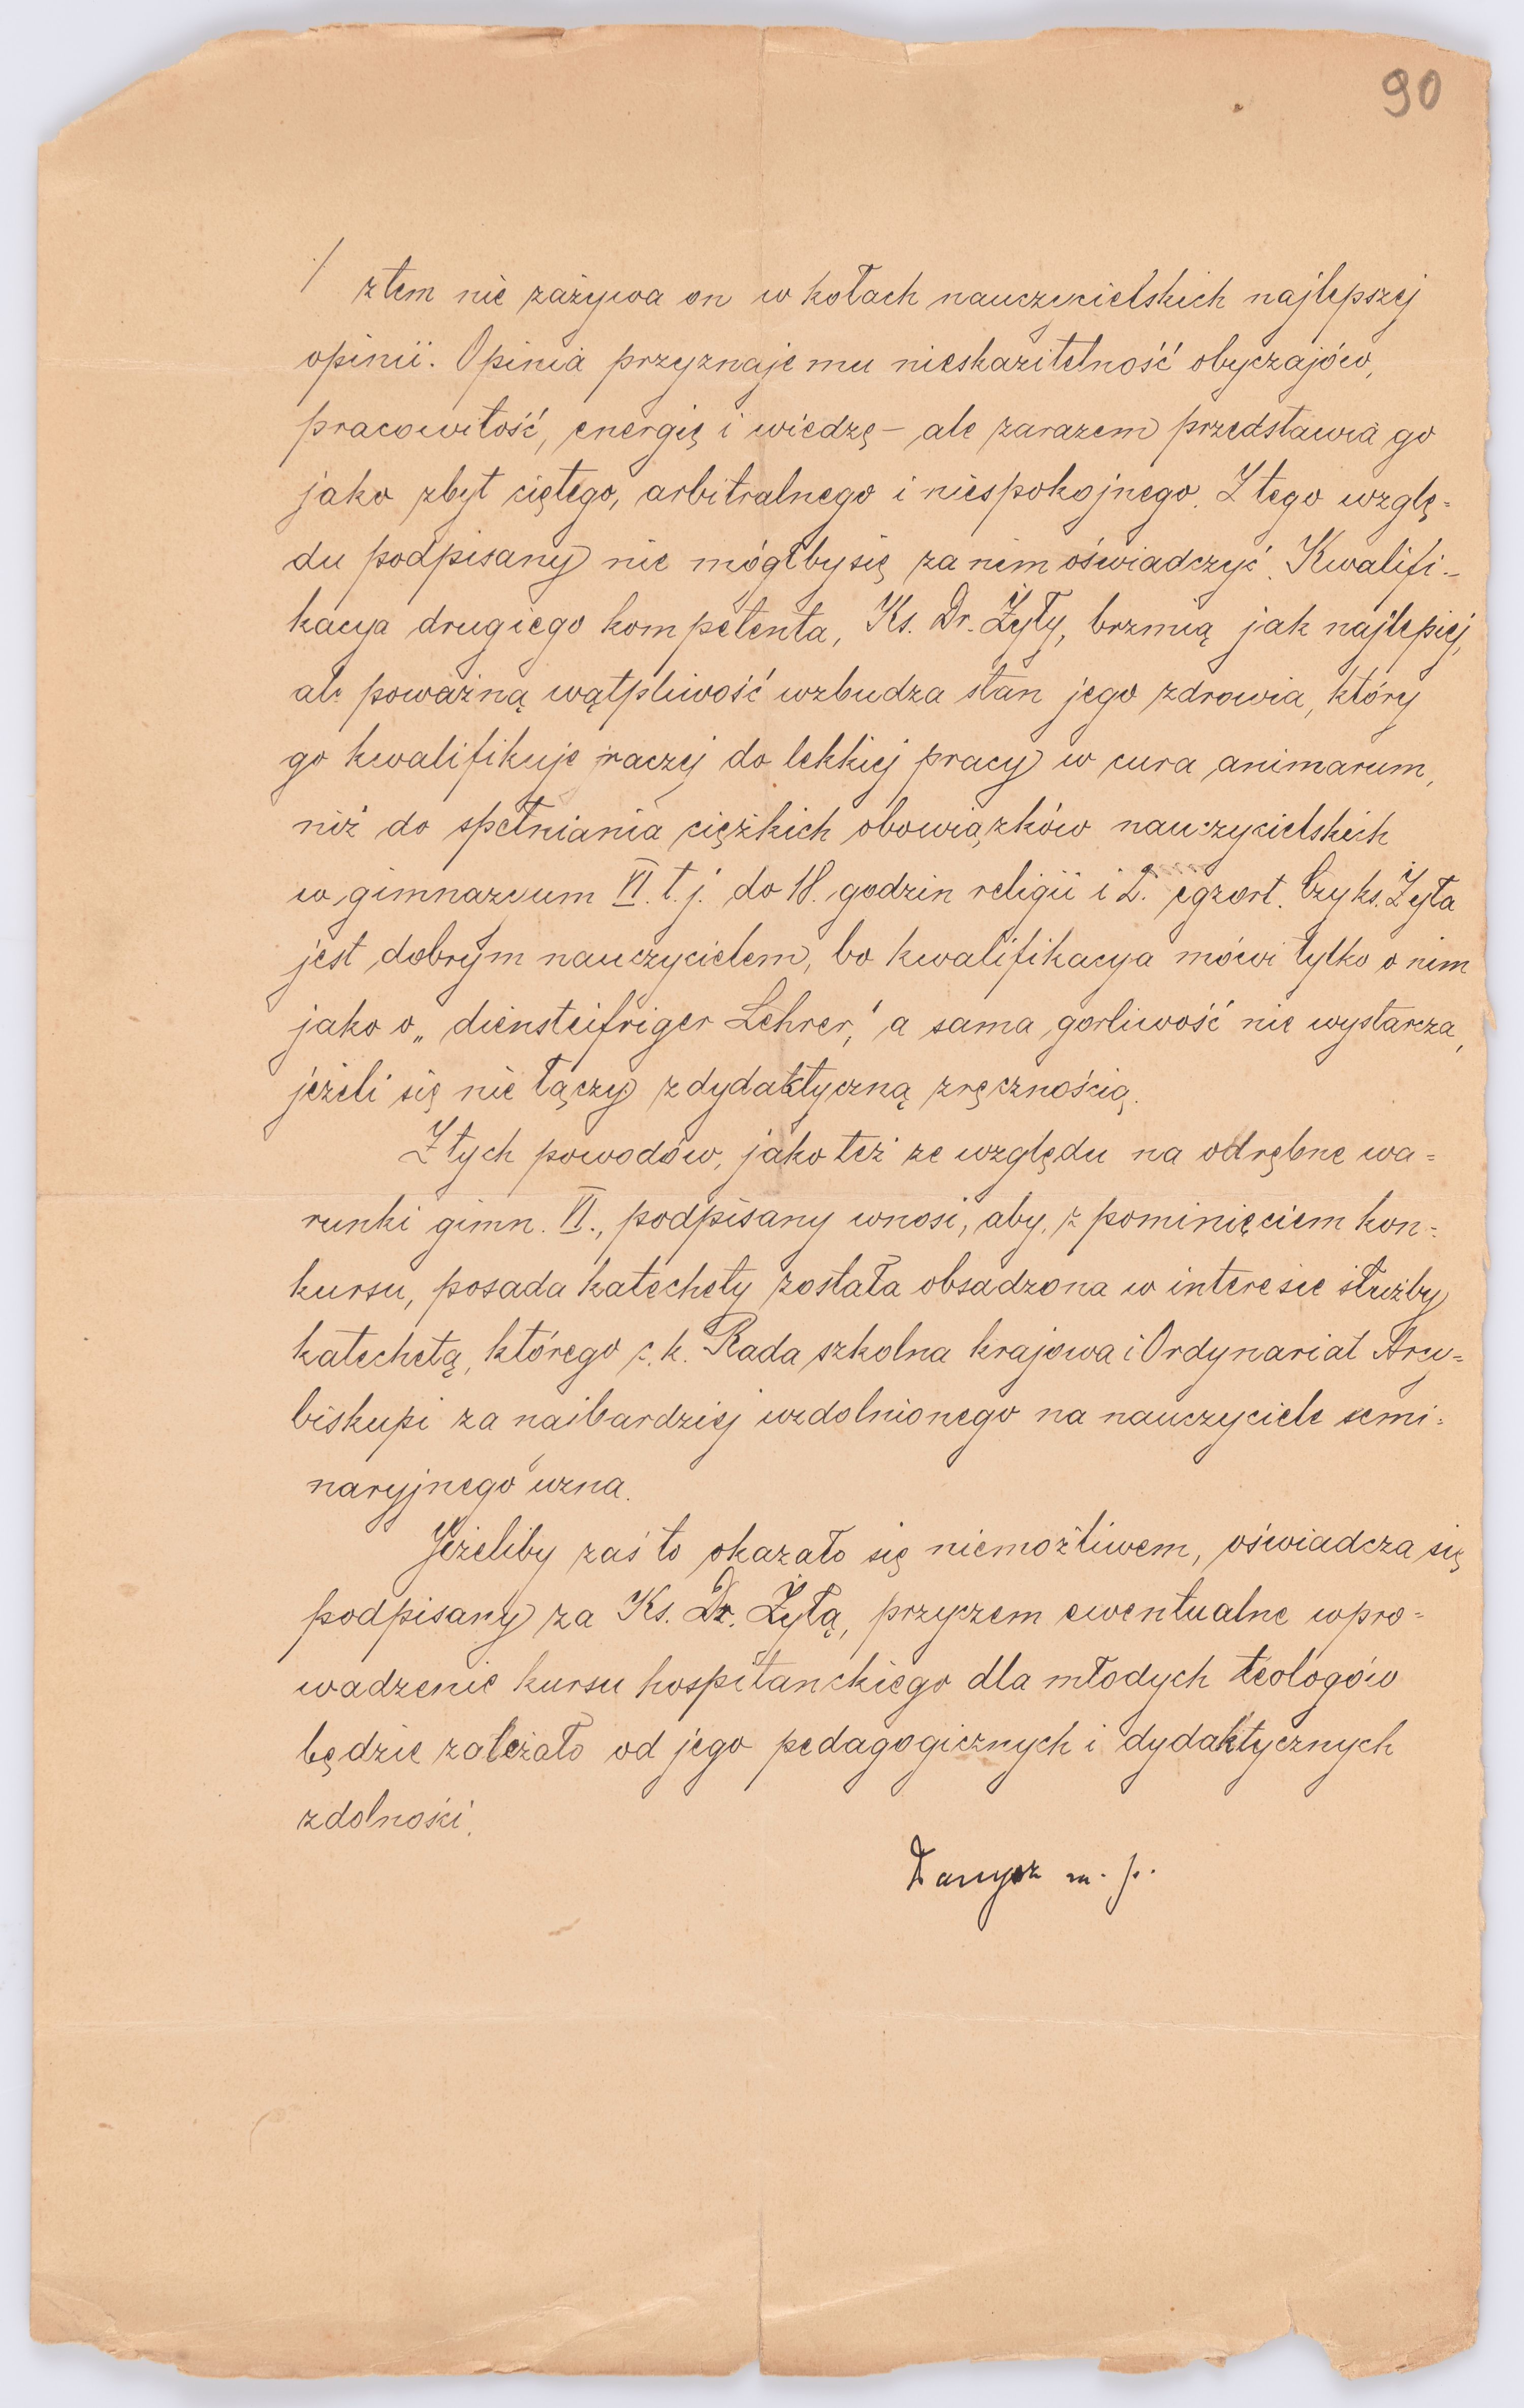 90
/ z tem nie zażywa on w kołach nauczycielskich najlepszej
opinii. Opinia przyznaje mu nieskazitelność obyczajów,
pracowitość, energię i wiedzę – ale zarazem przedstawia go
jako zbyt ciętego, arbitralnego i niespokojnego. Z tego wzglę=
du podpisany nie mógłby się za nim oświadczyć. Kwalifi=
kacya drugiego kompetenta, Ks. Dr. Żyły, brzmią jak najlepiej,
ale poważną wątpliwość wzbudza stan jego zdrowia, który
go kwalifikuje raczej do lekkiej pracy w cura animarum,
niż do spełniania ciężkich obowiązków nauczycielskich
w gimnazyum VI. t. j. do 18. godzin religii i 2. egzort. Czy ks. Żyła
jest dobrym nauczycielem, bo kwalifikacya mówi tylko o nim
jako o „diensteifriger Lehrer," a sama gorliwość nie wystarcza,
jeżeli się nie łączy z dydaktyczną zręcznością.
Z tych powodów, jako też ze względu na odrębne wa=
runki gimn. VI., podpisany wnosi, aby, z pominięciem kon=
kursu, posada katechety została obsadzona w interesie służby
katechetą, którego c. k. Rada szkolna krajowa i Ordynariat Arcy=
biskupi za najbardziej uzdolnionego na nauczyciele semi=
naryjnego uzna.
Jeżeliby zaś to okazało się niemożliwem, oświadcza się
podpisany za Ks. Dr. Żyłą, przyczem ewentualne wpro=
wadzenie kursu hospitanckiego dla młodych teologów
będzie zależało od jego pedagogicznych i dydaktycznych
zdolności.
Danysz m. p.